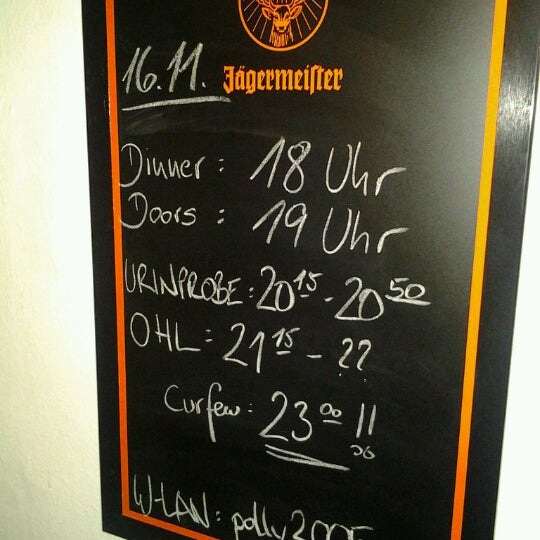 16.11.
Jägermeister
Dinner: 18 Uhr
Doors: 19 Uhr
URINPROBE: 20 15 - 20 50
OHL: 21 15 - ??
Curfew: 23 00 !!
W-LAN: polly2005